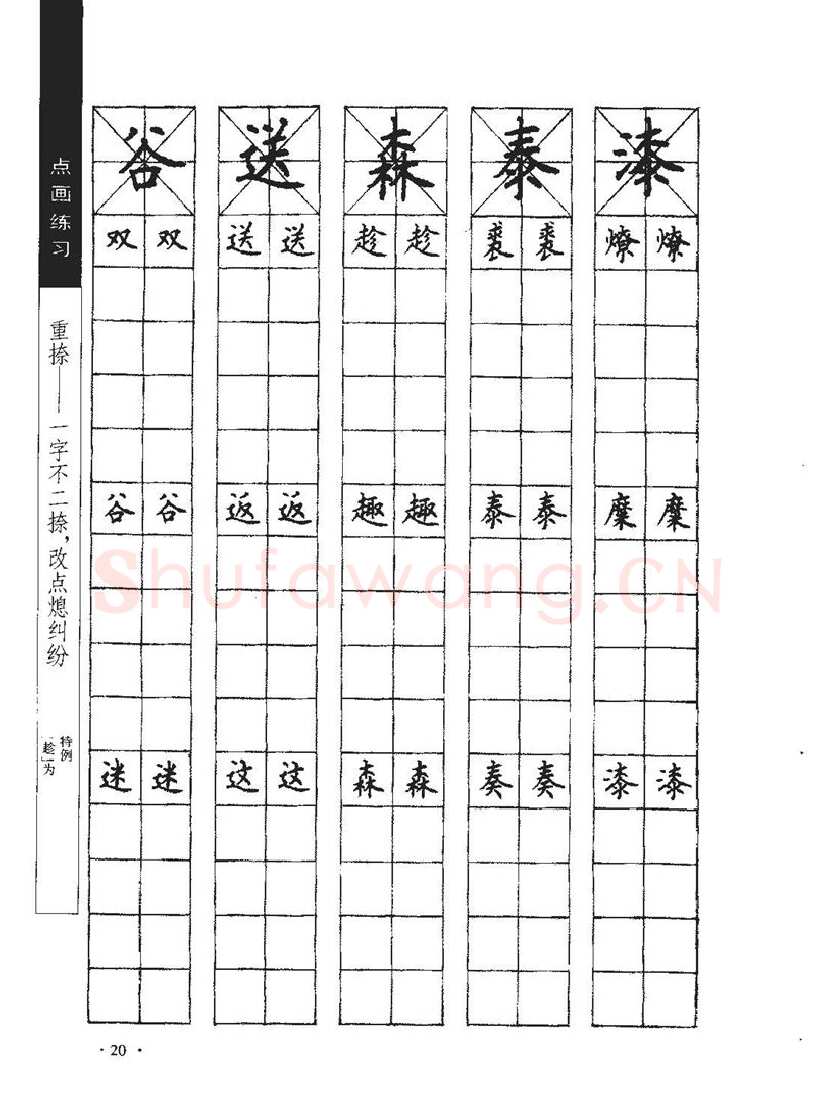 点画练习
重捺——一字不二捺,改点熄纠纷
特例
「趁」为
谷 送 森 泰 漆
双 双 送 送 趁 趁 裘 裘 燎 燎
谷 谷 返 返 趣 趣 泰 泰 糜 糜
迷 迷 这 这 森 森 奏 奏 漆 漆
Shufawang.CN
· 20 ·